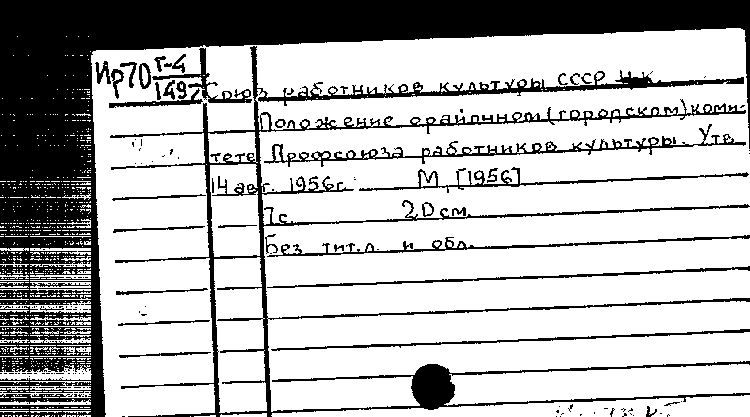 Ир70 Г-4
1497 Союз работников культуры СССР Ц.К.
Положение орайпнном (городском) коми-
тете Профсоюза работников культуры. Утв
14 авг. 1956г. М, [1956]
7с. 20см.
Без тит.л. и обл.